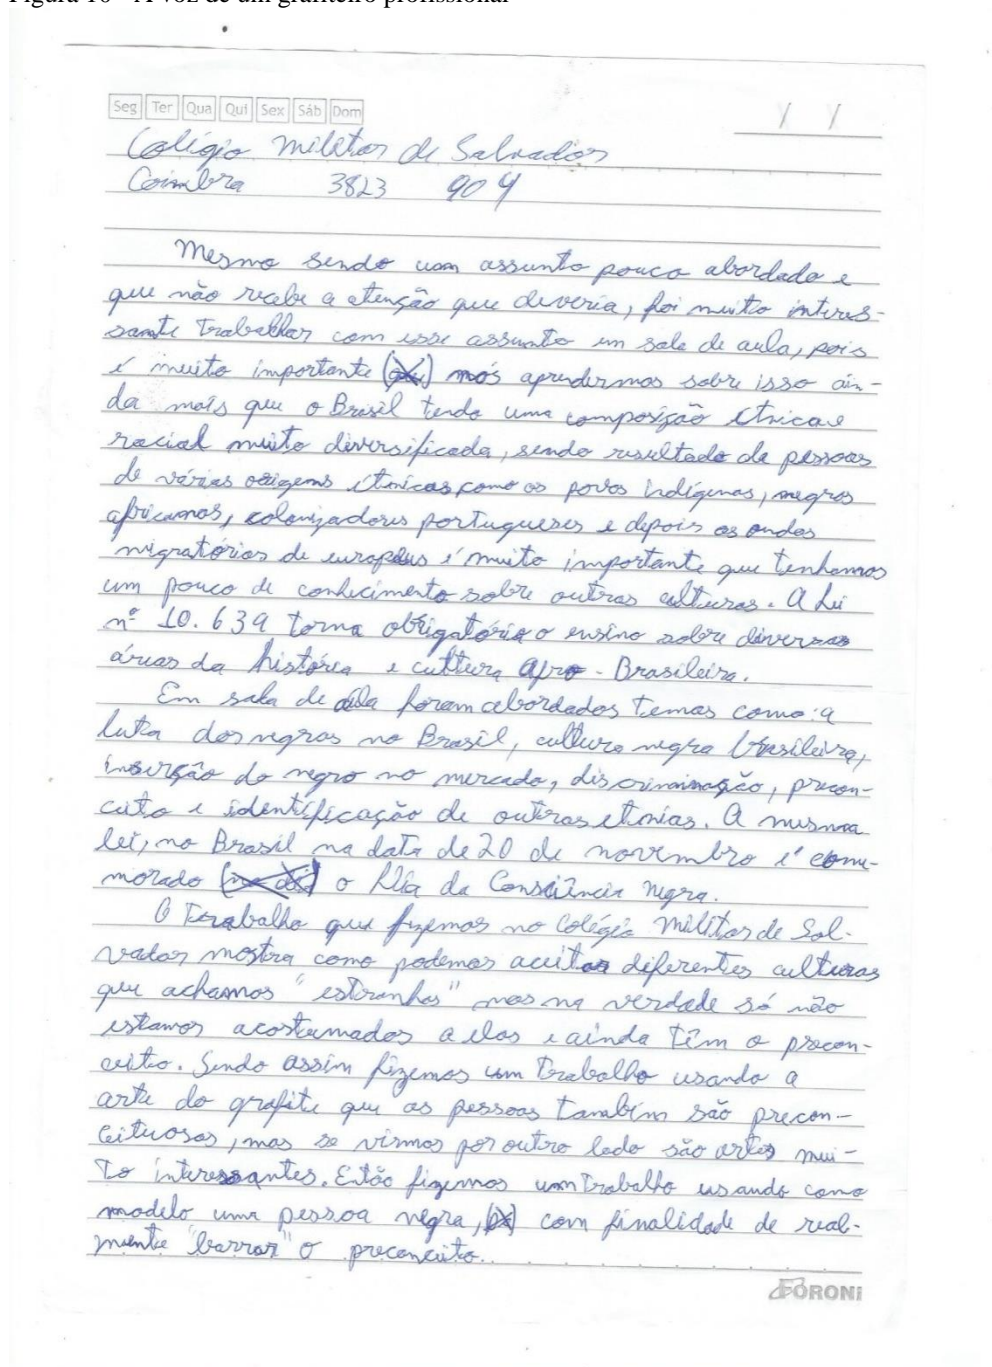 Figura 16 - A voz de um grafiteiro profissional
Seg Ter Qua Qui Sex Sáb Dom
/ /
Colégio Militar de Salvador
Coimbra 3823 904
Mesmo sendo um assunto pouco abordado e
que não recebe a atenção que deveria, foi muito interes-
sante trabalhar com esse assunto em sala de aula, pois
é muito importante nós aprendermos sobre isso ain-
da mais que o Brasil tendo uma composição étnica e
racial muito diversificada, sendo resultado de pessoas
de várias origens étnicas como os povos indígenas, negros
africanos, colonizadores portugueses e depois as ondas
migratórias de europeus é muito importante que tenhamos
um pouco de conhecimento sobre outras culturas. A Lei
nº 10.639 torna obrigatório o ensino sobre diversas
áreas da história e cultura Afro-Brasileira.
Em sala de aula foram abordados temas como: a
luta dos negros no Brasil, cultura negra brasileira,
inserção do negro no mercado, discriminação, precon-
ceito e identificação de outras etnias. A mesma
lei, no Brasil na data de 20 de novembro é come-
morado o Dia da Consciência negra.
O Trabalho que fizemos no Colégio Militar de Sal-
vador mostra como podemos aceitar diferentes culturas
que achamos "estranhas" mas na verdade só não
estamos acostumados a elas e ainda têm o precon-
ceito. Sendo assim fizemos um trabalho usando a
arte do grafite que as pessoas também são precon-
ceituosas, mas se virmos por outro lado são artes mui-
to interessantes. Então fizemos um trabalho usando como
modelo uma pessoa negra, com finalidade de real-
mente "barrar" o preconceito.
FORONI